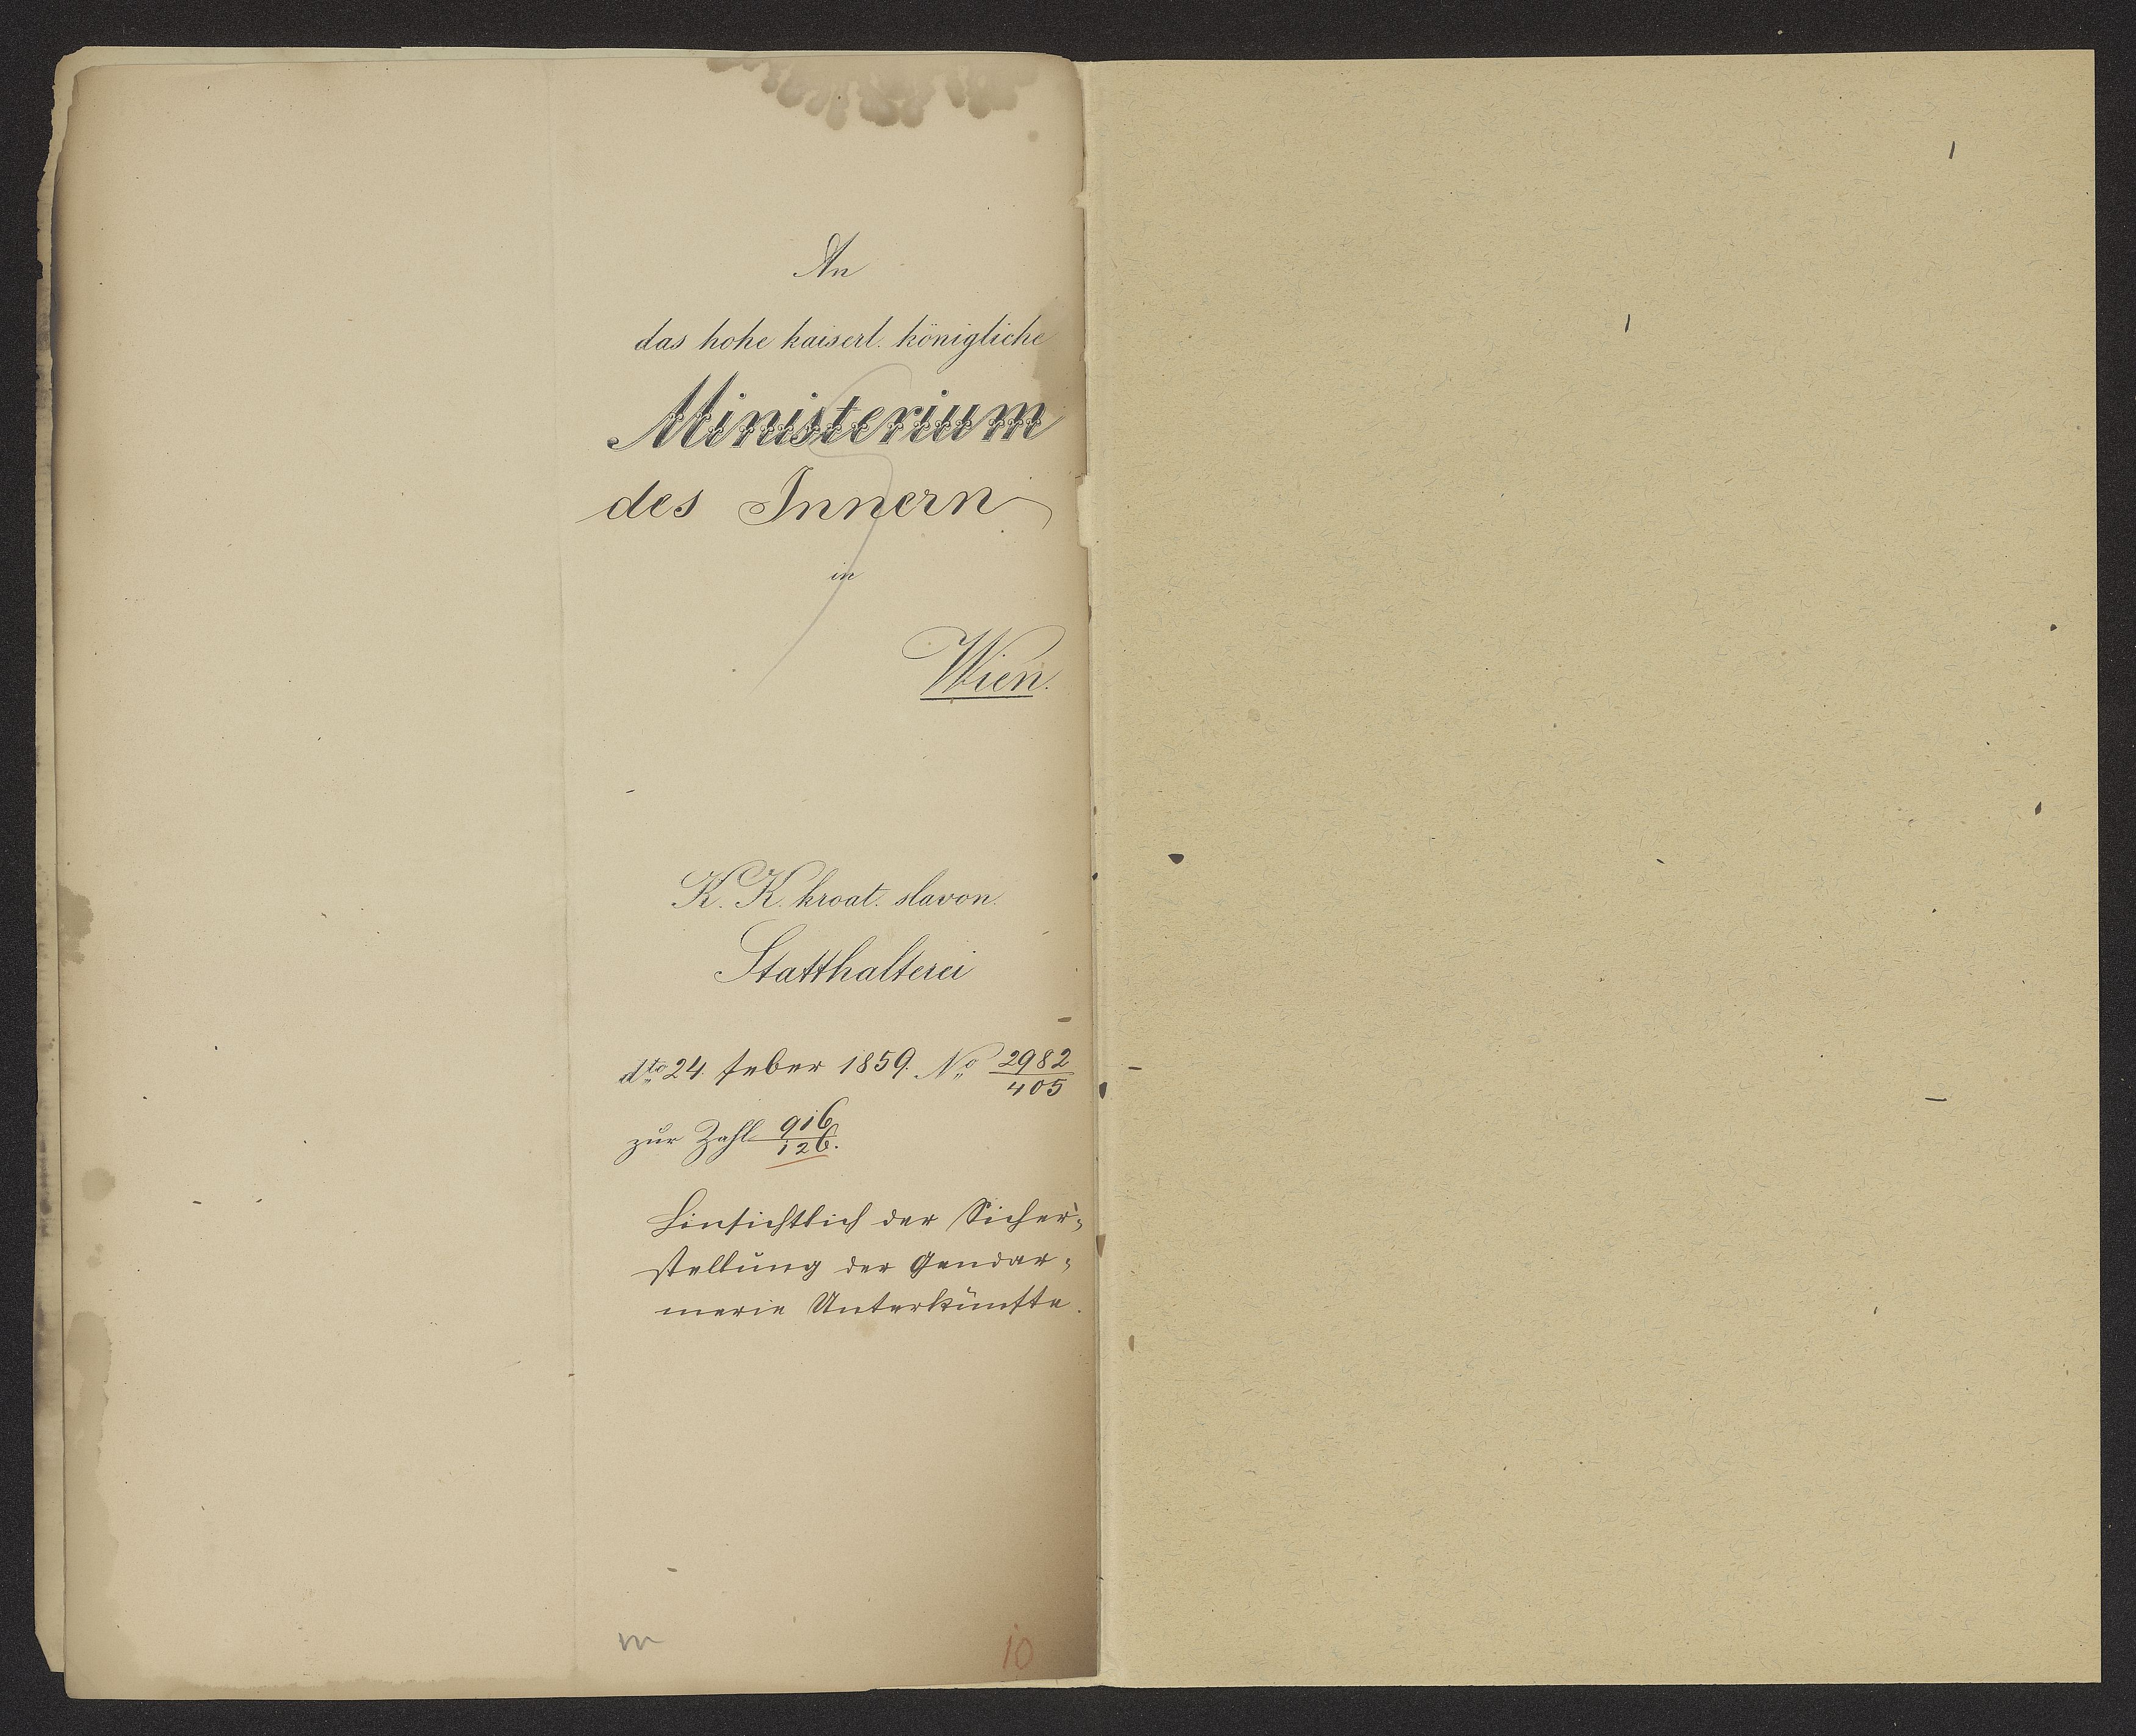 An
das hohe kaiserl. königliche
Ministerium
des Innern
in
Wien.
K. K. kroat. slavon.
Statthalterei
dto 24. feber 1859. No 2982/405
zur Zahl 916/126.
Hinsichtlich der Sicher=
stellung der Gendar=
merie Unterkünfte.
m
10